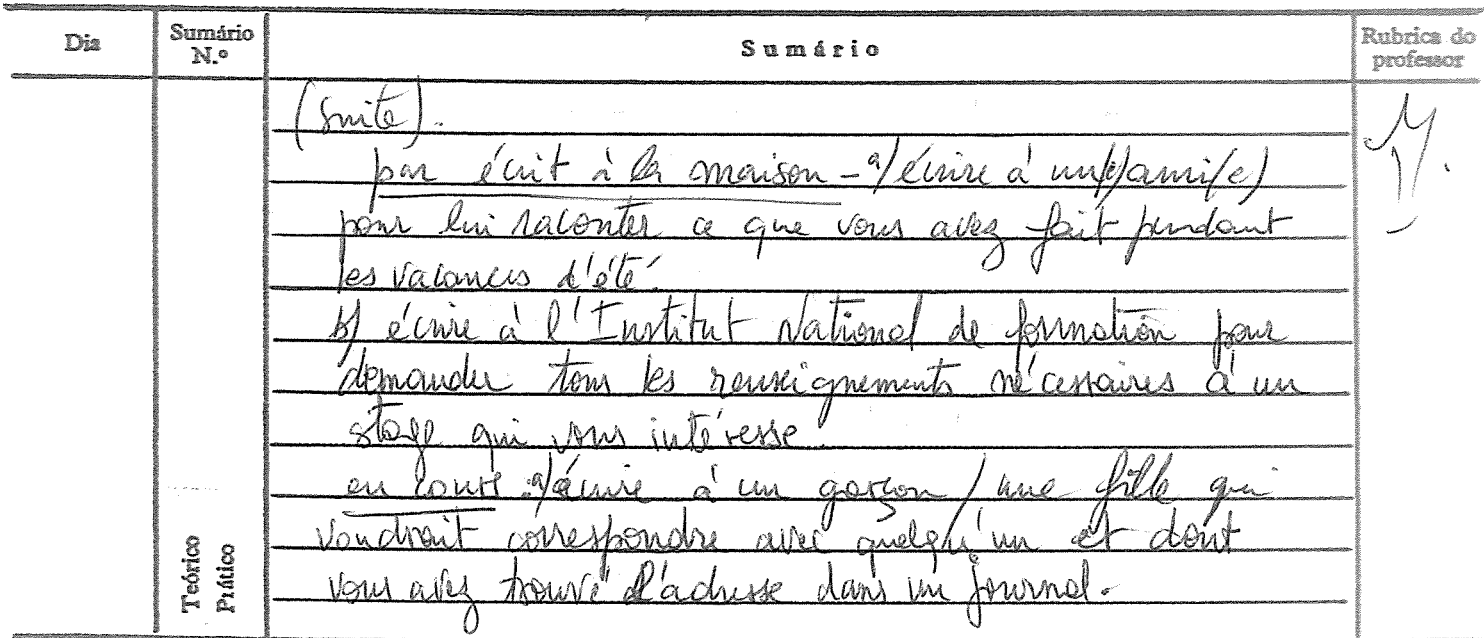 Dia Sumário N.º Sumário Rubrica do professor
(suite).
par écrit à la maison - a/ écrire à un(e) ami(e)
pour lui raconter ce que vous avez fait pendant
les vacances d'été.
b) écrire à l'Institut National de formation pour
demander tous les renseignements nécessaires à un
stage qui vous intéresse.
en cours : a/ écrire à un garçon / une fille qui
voudrait correspondre avec quelqu'un et dont
vous avez trouvé l'adresse dans un journal.
Teórico
Prático